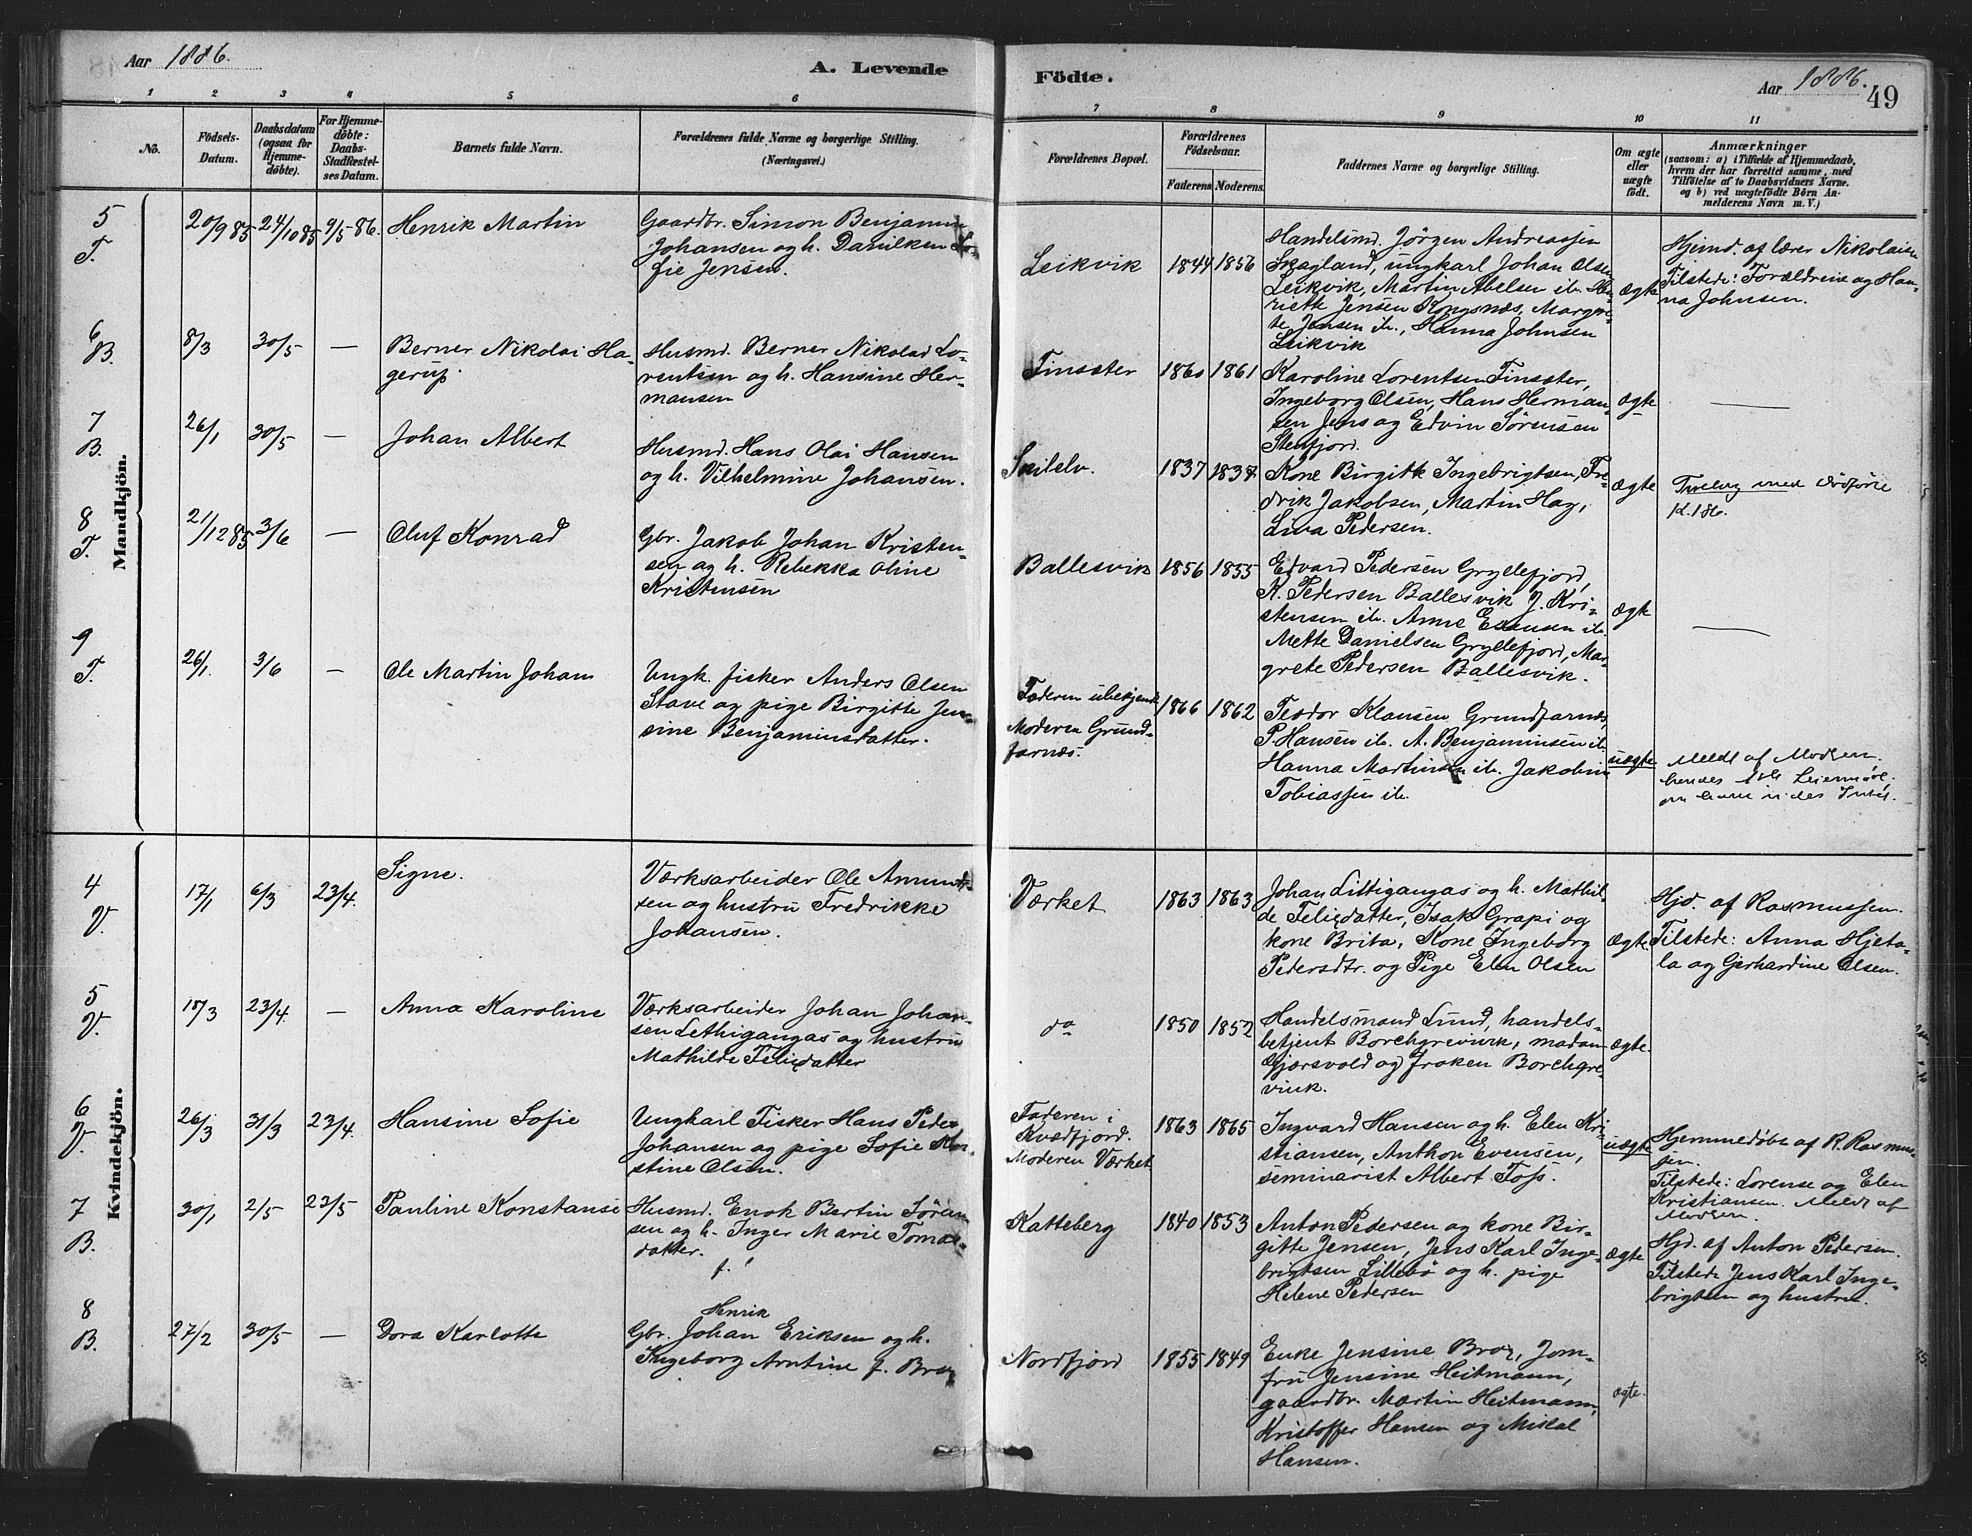 Aar 1886.
A. Levende
Födte.
Aar 1886.
49
1 2 3 4 5 6 7 8 9 10 11
No.
Födsels-
Datum.
Daabsdatum
(ogsaa for
Hjemme-
döbte).
For Hjemme-
döbte:
Daabs-
Stadfæstel-
ses Datum.
Barnets fulde Navn.
Forældrenes fulde Navne og borgerlige Stilling.
(Næringsvei.)
Forældrenes Bopæl.
Forældrenes
Födselsaar.
Faderens. Moderens.
Faddernes Navne og borgerlige Stilling.
Om ægte
eller
uægte
födt.
Anmærkninger
(saasom: a) i Tilfælde af Hjemmedaab,
hvem der har forrettet samme, med
Tilföielse af to Daabsvidners Navne.
og b) ved uægtefödte Börn An-
melderens Navn m. V.)
Mandkjön.
5
T.
20/9 85 24/10 85 9/5 86. Henrik Martin
Gaardbr. Simon Benjamin
Johansen og h. Danilken So-
fie Jensen.
Leikvik 1844 1856
Handelsmd. Jörgen Andreassen
Skagland, ungkarl Johan Olsen
Leikvik, Martin Abelsen ib. He-
riette Jensen Kongsnæs, Margre-
te Jensen ib., Hanna Johnsen
Leikvik
ægte
Hjemd. af lærer Nikolaisen
Tilstede: Forældrene og Han-
na Johnsen.
6
B.
8/3 30/5 — Berner Nikolai Ha-
gerup.
Husmd. Berner Nikolai Lo-
rentsen og h. Hansine Her-
mansen
Finsæter 1860 1861
Karoline Lorentsen Finsæter,
Ingeborg Olsen, Hans Herman-
sen Jens og Edvin Sörensen
Stenfjord.
ægte —
7
B.
26/1 30/5 — Johan Albert
Husmd. Hans Olai Hansen
og h. Vilhelmine Johansen.
1837 1837
Kone Birgitte Ingebrigtsen, Fre-
drik Jakobsen, Martin Hag,
Lina Pedersen.
ægte
Tvilling med dödföde
8
T.
21/12 85 3/6 — Oluf Konrad
Gbr. Jakob Johan Kristen-
sen og h. Rebekka Oline
Kristensen
Ballesvik 1856 1855
Edvard Pedersen Gryllefjord,
K. Pedersen Ballesvik J. Kri-
stensen ib. Anne Evensen ib.
Mette Danielsen Gryllefjord, Mar-
grete Pedersen Ballesvik.
ægte —
9
T.
26/1. 3/6 — Ole Martin Johan
Ungk. fisker Anders Olsen
Stave og pige Birgitte Jen-
sine Benjaminsdatter.
Faderen ubekjendt
Moderen Grund-
farnæs.
1866 1862
Teodor Klausen Grundfarnes
P. Hansen ib. A. Benjaminsen ib.
Hanna Martinsen ib. Jakobine
Tobiassen ib.
uægte
Meldt af Moderen.
hendes 1ste Leiermaal.
Kvindekjön.
4
V.
17/1 6/3 23/4. Signe.
Værksarbeider Ole Amund-
sen og hustru Fredrikke
Johansen.
Værket 1863 1863
Johan Littigangas og h. Mathil-
de Felixdatter, Isak Grapi og
kone Brita, Kone Ingeborg
Pedersdtr. og Pige Elen Olsen
ægte
Hjd. af Rasmussen.
Tilstede: Anna Hjeta-
la og Gerhardine Olsen.
5
V.
15/3 23/4. — Anna Karoline
Værksarbeider Johan Johan-
sen Lethigangas og hustru
Mathilde Felixdatter
do 1850 1852
Handelsmand Lund, handels-
betjent Borchgrevink, madam
Gjærsvold og frøken Borchgre-
vink.
ægte.
6
V.
26/3 31/3 23/4. Hansine Sofie
Ungkarl Fisker Hans Peder
Johansen og pige Sofie Kri-
stine Olsen.
Faderen i
Kvædfjord.
Moderen Værket
1863 1865
Ingvard Hansen og h. Elen Kri-
stiansen, Anthon Evensen,
seminarist Albert Foss.
uægte
Hjemmedøbt af R. Rasmus-
sen.
Tilstede: Lorense og Elen
Kristiansen. Meldt af
Modren.
7
B.
30/1 2/5 23/5 Pauline Konstanse
Husmd. Enok Bertin Sören-
sen og h. Inger Marie Tomas-
datter.
f.
Katteberg 1840 1853
Anton Pedersen og kone Bir-
gitte Jensen, Jens Karl Inge-
brigtsen Lillebö og h. pige
Helene Pedersen
ægte
Hjd. af Anton Pedersen.
Tilstede Jens Karl Inge-
brigtsen og hustru.
8
B.
27/2 30/5 — Dora Karlotte
Henrik
Gbr. Johan Eriksen og h.
Ingeborg Arntine f. Brox
Nordfjord 1855 1849
Enke Jensine Brox, Jom-
fru Jensine Heitmann,
gaardbr. Martin Heitmann,
Kristoffer Hansen og Mikal
Hansen.
ægte.